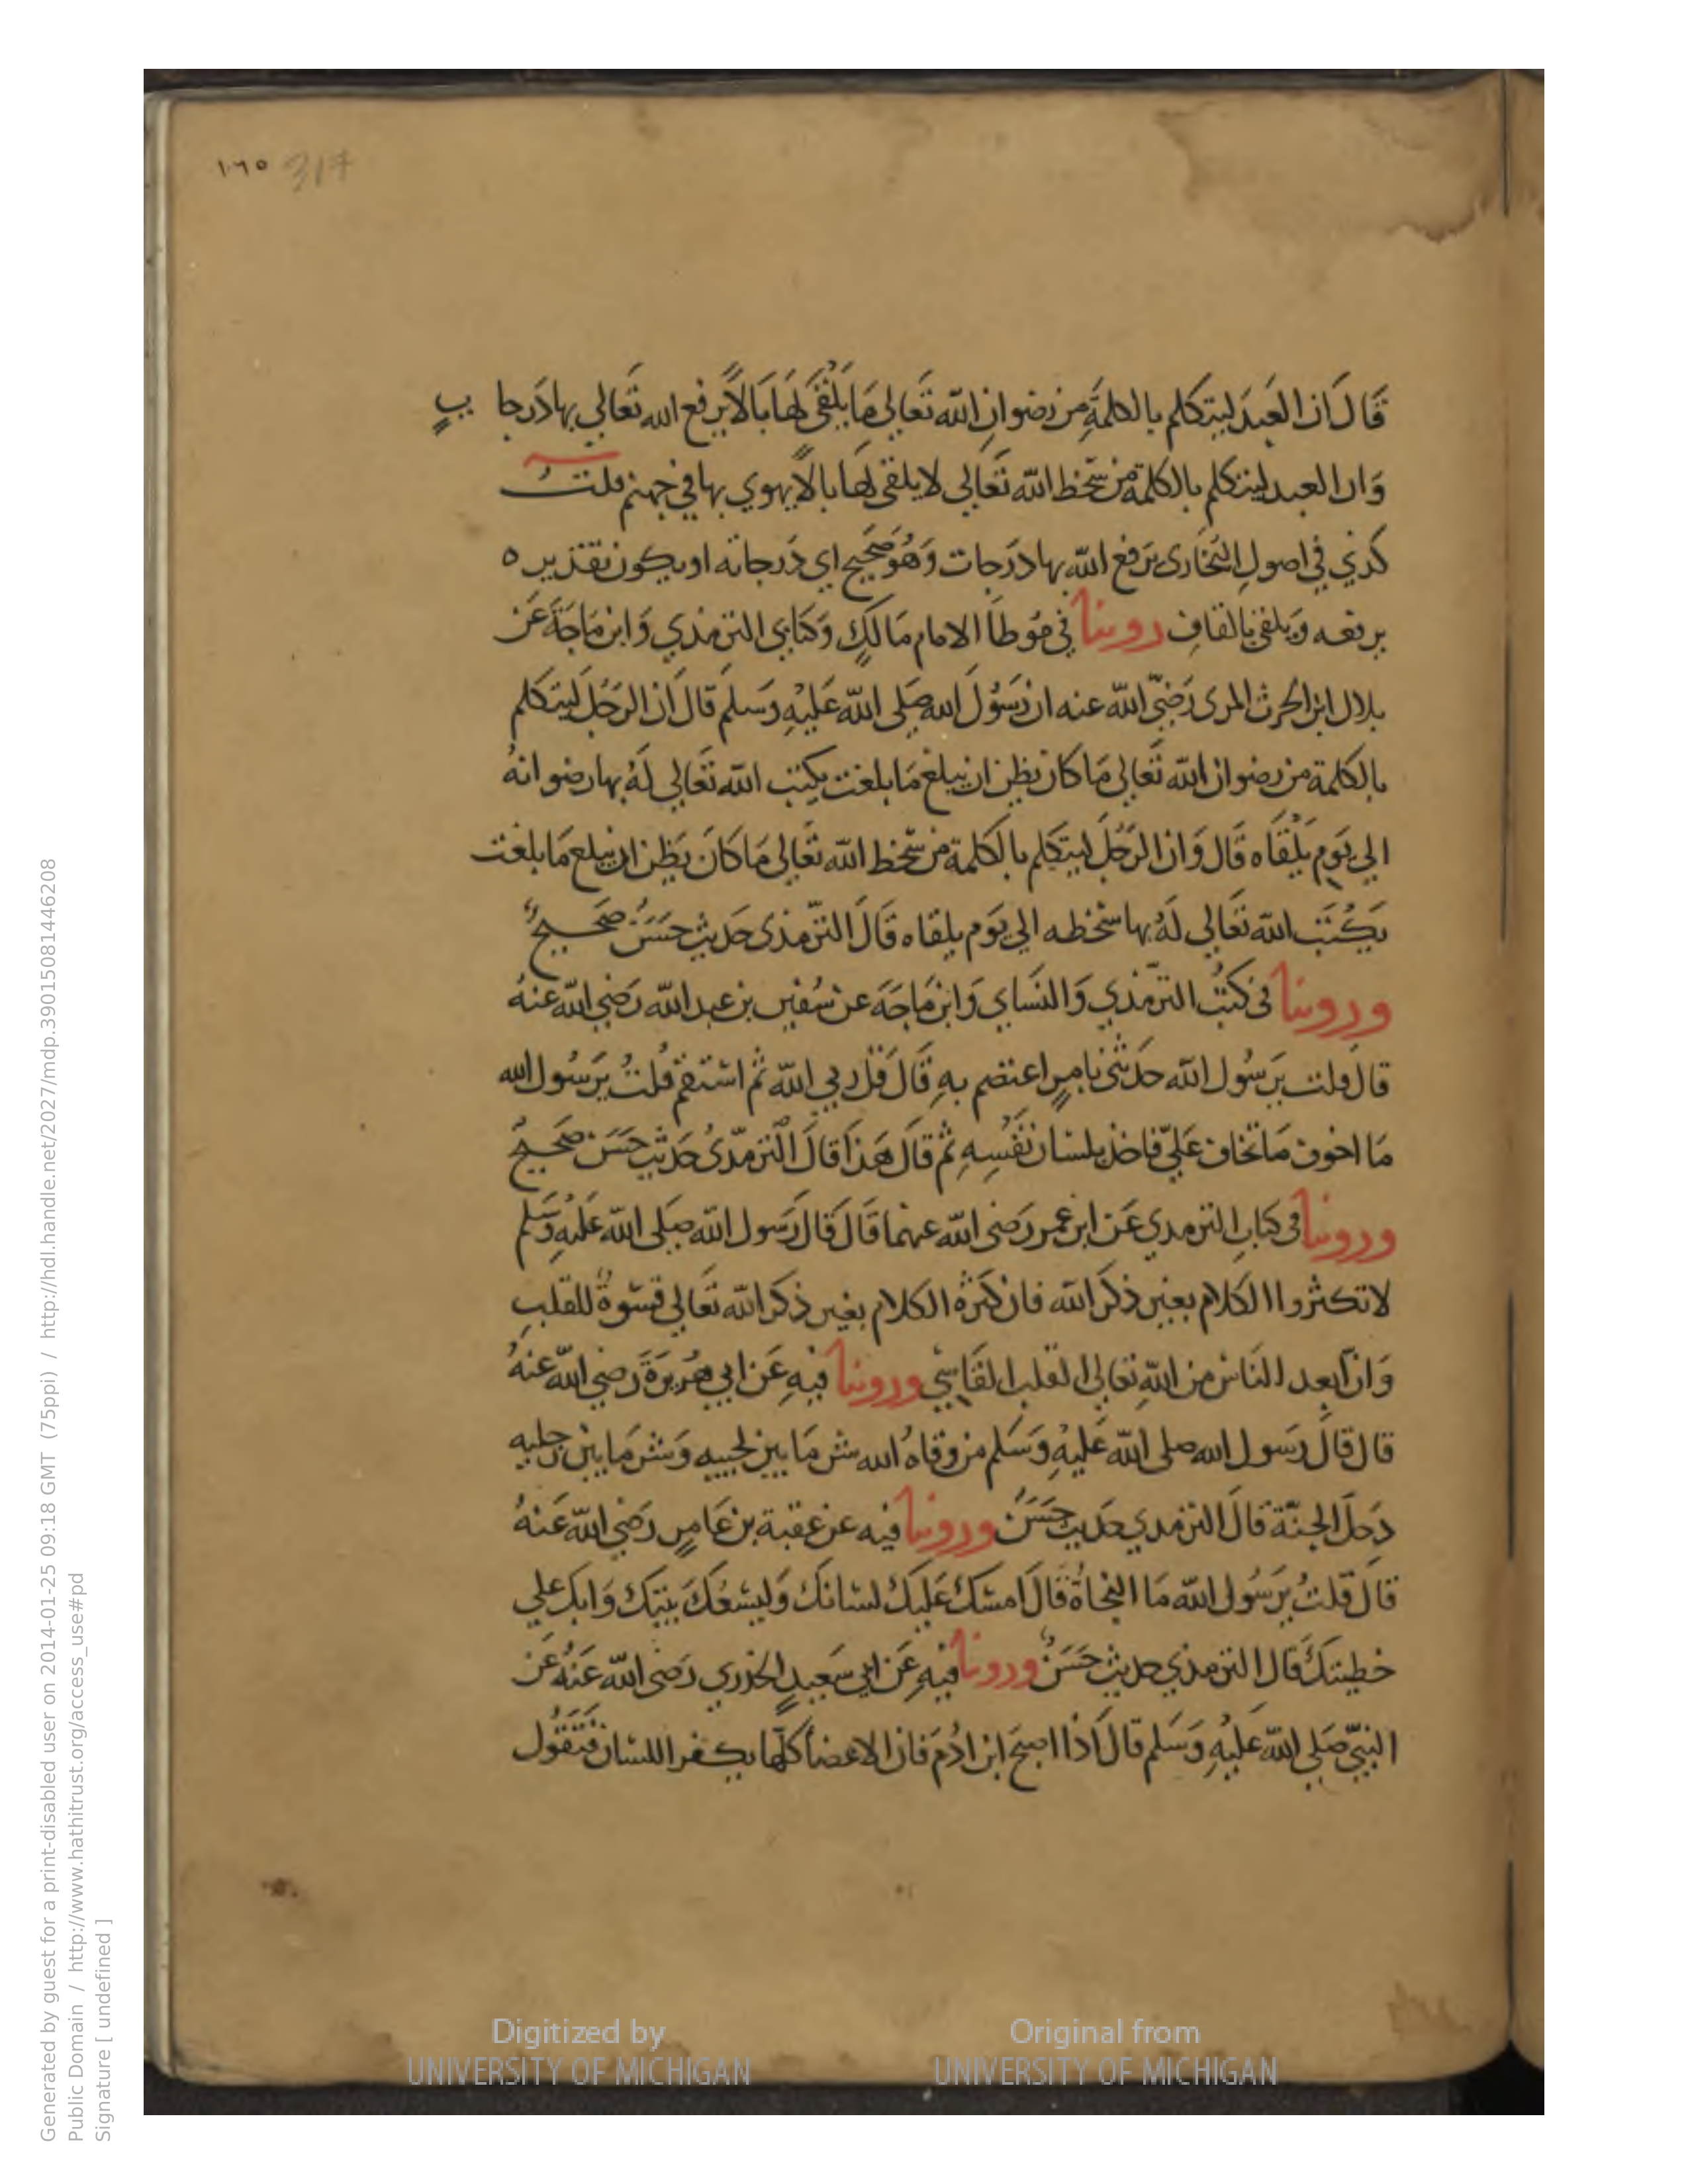 ١٠٦٥ 317
قَالَ اَن العَبدَ ليتكلم بالكلمَةِ من رضوان الله تَعَالي مَا يَلْقَى لهَا بَالاً يرفع الله تَعَالي بها دَرجات
وَان العبد ليتكلم بالكلمة من سَّخط الله تعَالي لا يلقى لهَا بالاً يهوي بها في جهنم قلتُ
كذي في اصولِ البُخَارى يَرفع الله بها درَجات وَهُوَ صَحَيح اي دَرجاته او يكون تقديره
يرفعه وَيلقي بالقافِ روينا في مُوطأ الامام مَالكٍ وَكتابي الترمذي وَابن مَاجَةَ عَن
بلال ابن الحرث المرى رَضِيَ الله عنه ان رَسُولَ الله صَلى الله عَليْهِ وَسَلم قَالَ اَن الرجُلَ ليَتكلم
بالكلمة من رضوان الله تَعَالي مَا كان يظن ان يبلغ مَا بلغت يكتب الله تعَالي لَهُ بها رضوانهُ
الي يَوم يَلْقَاه قَال وَان الرَجُلَ ليتكلم بالكلمة من سَّخط الله تعَالي مَا كَانَ يَظن ان يبلع مَا بلغت
يَكْتَب الله تعَالي لَهُ بها سَّخطه الي يَوم يلقاه قَالَ الترّمذى حَديث حَسَنٌ صَحَيحٌ
وروينا في كتُبُ الترّمذي وَالنسَاي وَابن مَاجَهَ عن سُفين بن عبد الله رَضي الله عنهُ
قال قلت يرَسُول الله حَدثنى بامرٍ اعتصم بهِ قَالَ قل ربي الله ثم استقم قُلتُ يرَسُول الله
مَا اخوف مَا تخَاف عَليّ فاخذ بلسان نَفْسِهِ ثم قَالَ هَذا قَالَ الترمذىُ حَديث حَسَن صَحَيحٌ
وروينا في كتابِ الترمدي عَن ابن عمر رَضى الله عنهما قَالَ قَالَ رَسول الله صَلى الله عَليْهِ وَسَلم
لا تكثروا الكلام بغير ذكر الله فان كثرة الكلام بغير ذكر الله تَعَالي قسْوةٌ للقلبِ
وَان اَبعد النَاس من الله تعَالى القلب القَاسِي وروينا فيهِ عَن ابي هُرَيرَةَ رَضي الله عنهُ
قال قَالَ رَسول الله صلى الله عَليْهِ وَسَلم من وقاهُ الله شر مَا بين لحييه وَشر مَا بين رجليه
دَخلَ الجنّة قَالَ الترمدي حَديث حَسَنٌ وروينا فيه عن عقبة بن عَامرٍ رَضي الله عَنهُ
قَال قلتُ يرَسُول الله مَا النجَاةُ قَالَ امسَك عَليكَ لسَانكَ وَليسْعُكَ بيتكَ وَابك علي
خطيئتكَ قَال الترمذي حديث حَسَنٌ وروينا فيهِ عَن ابي سَعيدٍ الخذري رَضى الله عَنهُ عَن
النبيّ صَلي الله عَليْهِ وَسَلم قَالَ اذَا اصبحَ ابن ادَمَ فان الاعضأ كلّها يكفر اللسَان فَتَقُول
Generated by guest for a print-disabled user on 2014-01-25 09:18 GMT (75ppi) / http://hdl.handle.net/2027/mdp.39015081446208
Public Domain / http://www.hathitrust.org/access_use#pd
Signature [ undefined ]
Digitized by
UNIVERSITY OF MICHIGAN
Original from
UNIVERSITY OF MICHIGAN